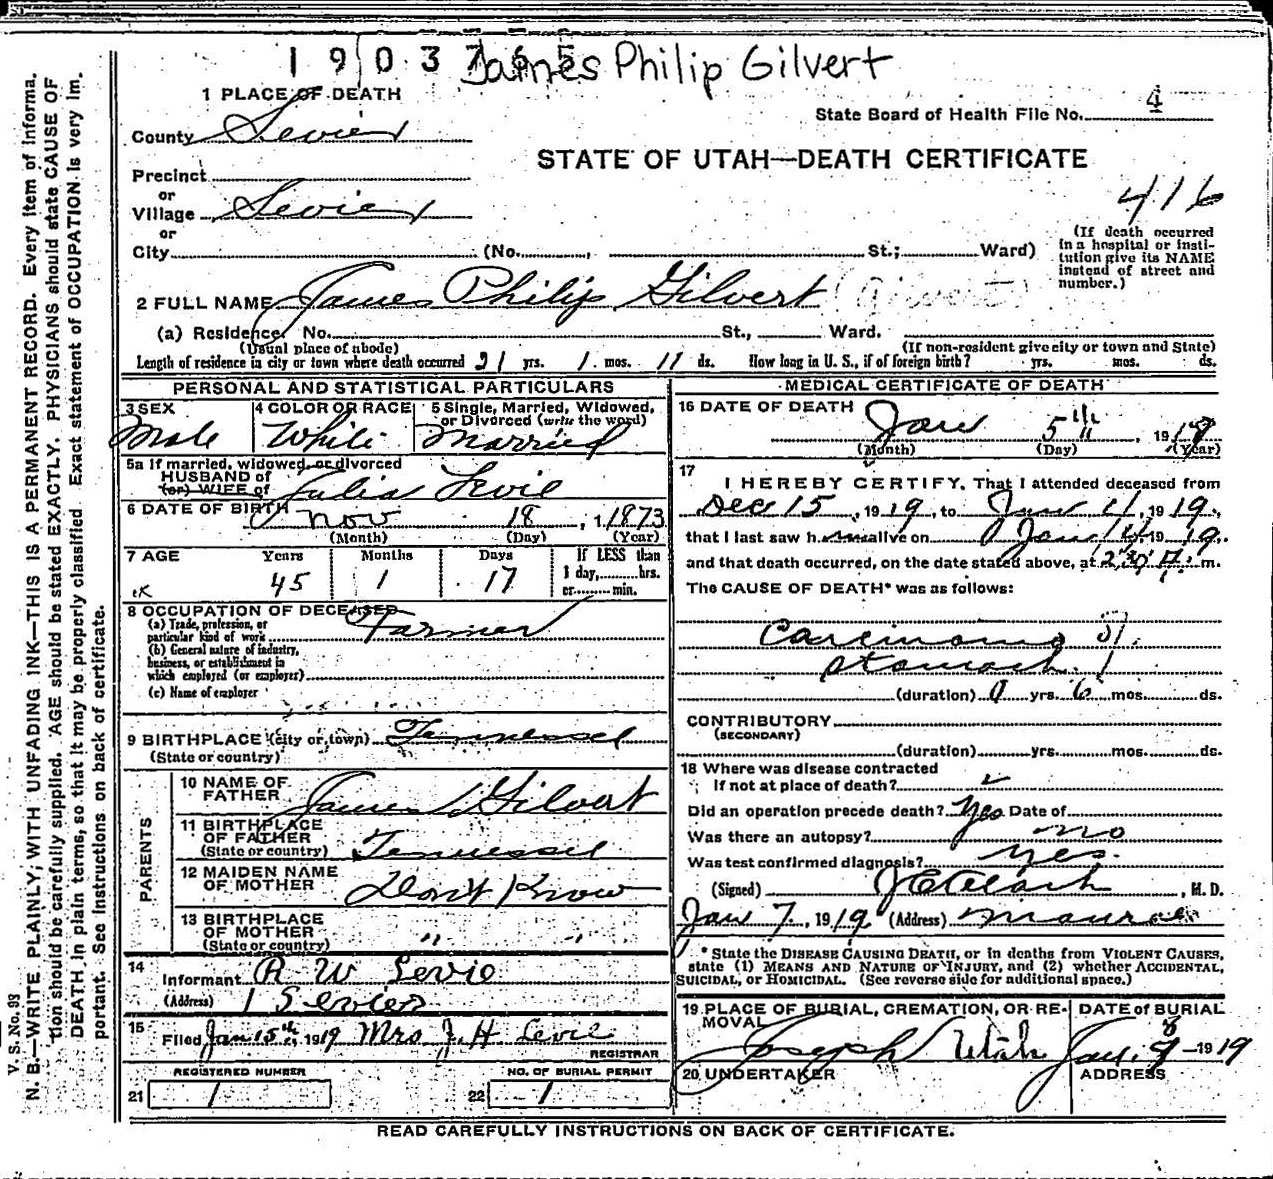 1 9 0 3 7 James Philip Gilvert
1 PLACE OF DEATH
State Board of Health File No. 4
County Sevier
STATE OF UTAH—DEATH CERTIFICATE
Precinct
or
416
Village Sevier
or
City (No. , St.; Ward)
(If death occurred
in a hospital or insti-
tution give its NAME
instead of street and
number.)
2 FULL NAME James Philip Gilvert (Gilvert)
(a) Residence, No. St., Ward.
(Usual place of abode) (If non-resident give city or town and State)
Length of residence in city or town where death occurred 21 yrs. 1 mos. 11 ds. How long in U. S., if of foreign birth? yrs. mos. ds.
PERSONAL AND STATISTICAL PARTICULARS
3 SEX 4 COLOR OR RACE 5 Single, Married, Widowed,
or Divorced (write the word)
Male White Married
5a If married, widowed, or divorced
HUSBAND of
(or) WIFE of Julia Levie
6 DATE OF BIRTH Nov 18, 1 1873
(Month) (Day) (Year)
7 AGE Years Months Days If LESS than
1 day, hrs.
or min.
45 1 17
8 OCCUPATION OF DECEASED
(a) Trade, profession, or
particular kind of work Farmer
(b) General nature of industry,
business, or establishment in
which employed (or employer)
(c) Name of employer
9 BIRTHPLACE (city or town) Tennessee
(State or country)
PARENTS
10 NAME OF
FATHER James Gilvert
11 BIRTHPLACE
OF FATHER
(State or country) Tennessee
12 MAIDEN NAME
OF MOTHER Dont Know
13 BIRTHPLACE
OF MOTHER
(State or country) " "
14
Informant R W Levie
(Address) Sevier
15 Filed Jan 15th, 1919 Mrs J. H. Levie
REGISTRAR
REGISTERED NUMBER NO. OF BURIAL PERMIT
21 1 22 1
MEDICAL CERTIFICATE OF DEATH
16 DATE OF DEATH
Jan 5th, 1919
(Month) (Day) (Year)
17
I HEREBY CERTIFY, That I attended deceased from
Dec 15, 1919, to Jan 4, 1919,
that I last saw him alive on Jan 4, 1919,
and that death occurred, on the date stated above, at 2:30 P. m.
The CAUSE OF DEATH* was as follows:
Carcinoma of
stomach.
(duration) 0 yrs. 6 mos. ds.
CONTRIBUTORY
(SECONDARY)
(duration) yrs. mos. ds.
18 Where was disease contracted
If not at place of death?
Did an operation precede death? Yes Date of
Was there an autopsy? no
Was test confirmed diagnosis? Yes.
(Signed) , M. D.
Jan 7, 1919 (Address) Monroe
* State the DISEASE CAUSING DEATH, or in deaths from VIOLENT CAUSES,
state (1) MEANS AND NATURE OF INJURY, and (2) whether ACCIDENTAL,
SUICIDAL, or HOMICIDAL. (See reverse side for additional space.)
19 PLACE OF BURIAL, CREMATION, OR RE-
MOVAL
DATE of BURIAL
Joseph Utah Jan. 1919
20 UNDERTAKER ADDRESS
READ CAREFULLY INSTRUCTIONS ON BACK OF CERTIFICATE.
V. S. No. 93
N. B.—WRITE PLAINLY, WITH UNFADING INK—THIS IS A PERMANENT RECORD. Every item of informa-
tion should be carefully supplied. AGE should be stated EXACTLY. PHYSICIANS should state CAUSE OF
DEATH in plain terms, so that it may be properly classified. Exact statement of OCCUPATION is very im-
portant. See instructions on back of certificate.